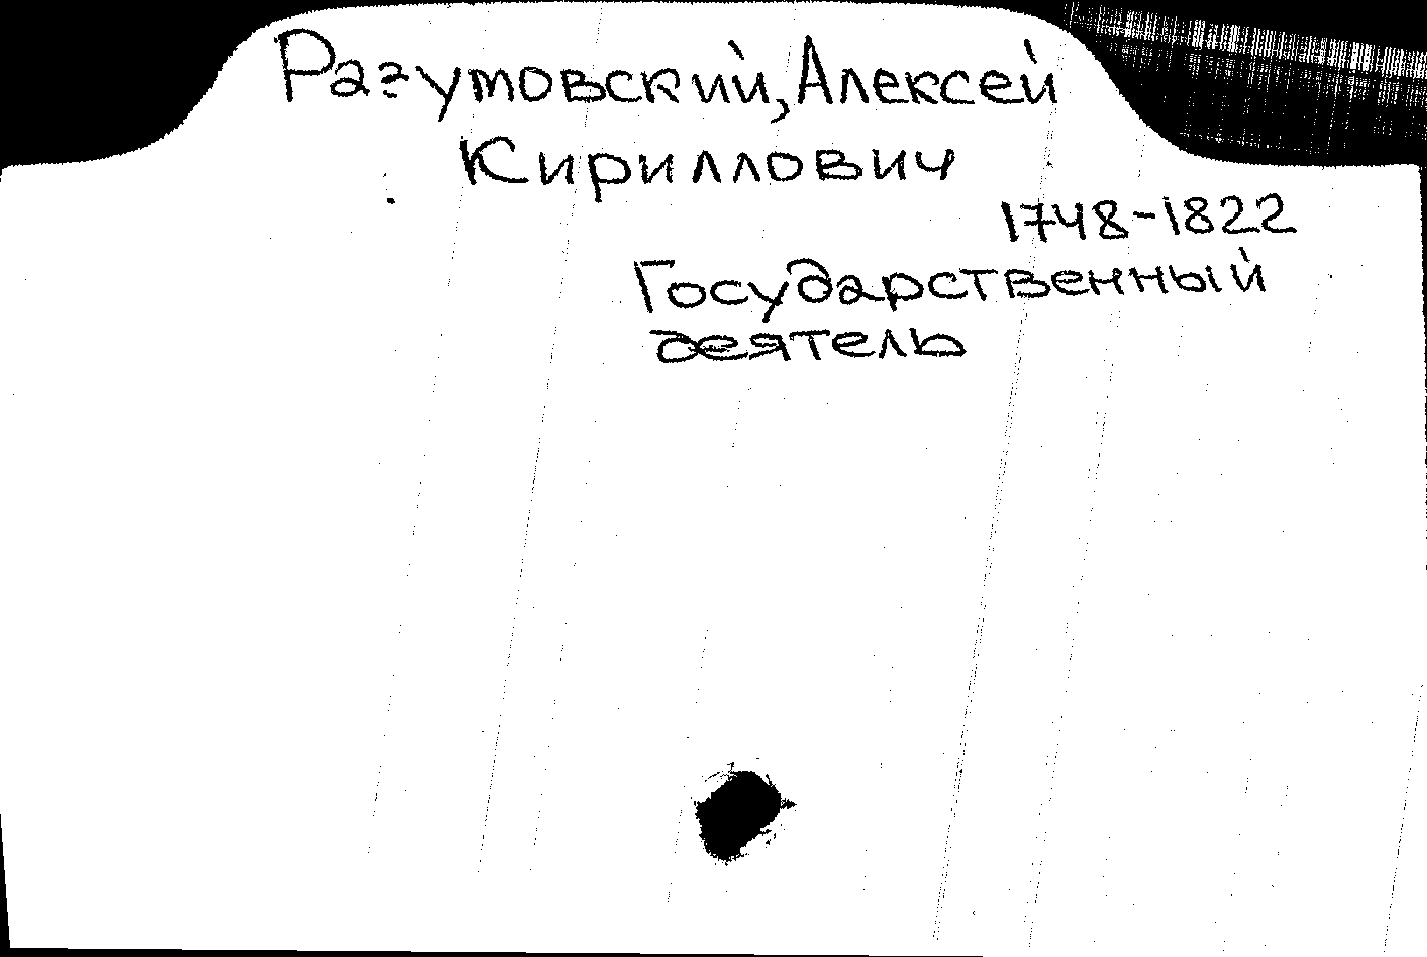 Разумовский, Алексей
Кириллович
1748-1822
Государственный
деятель